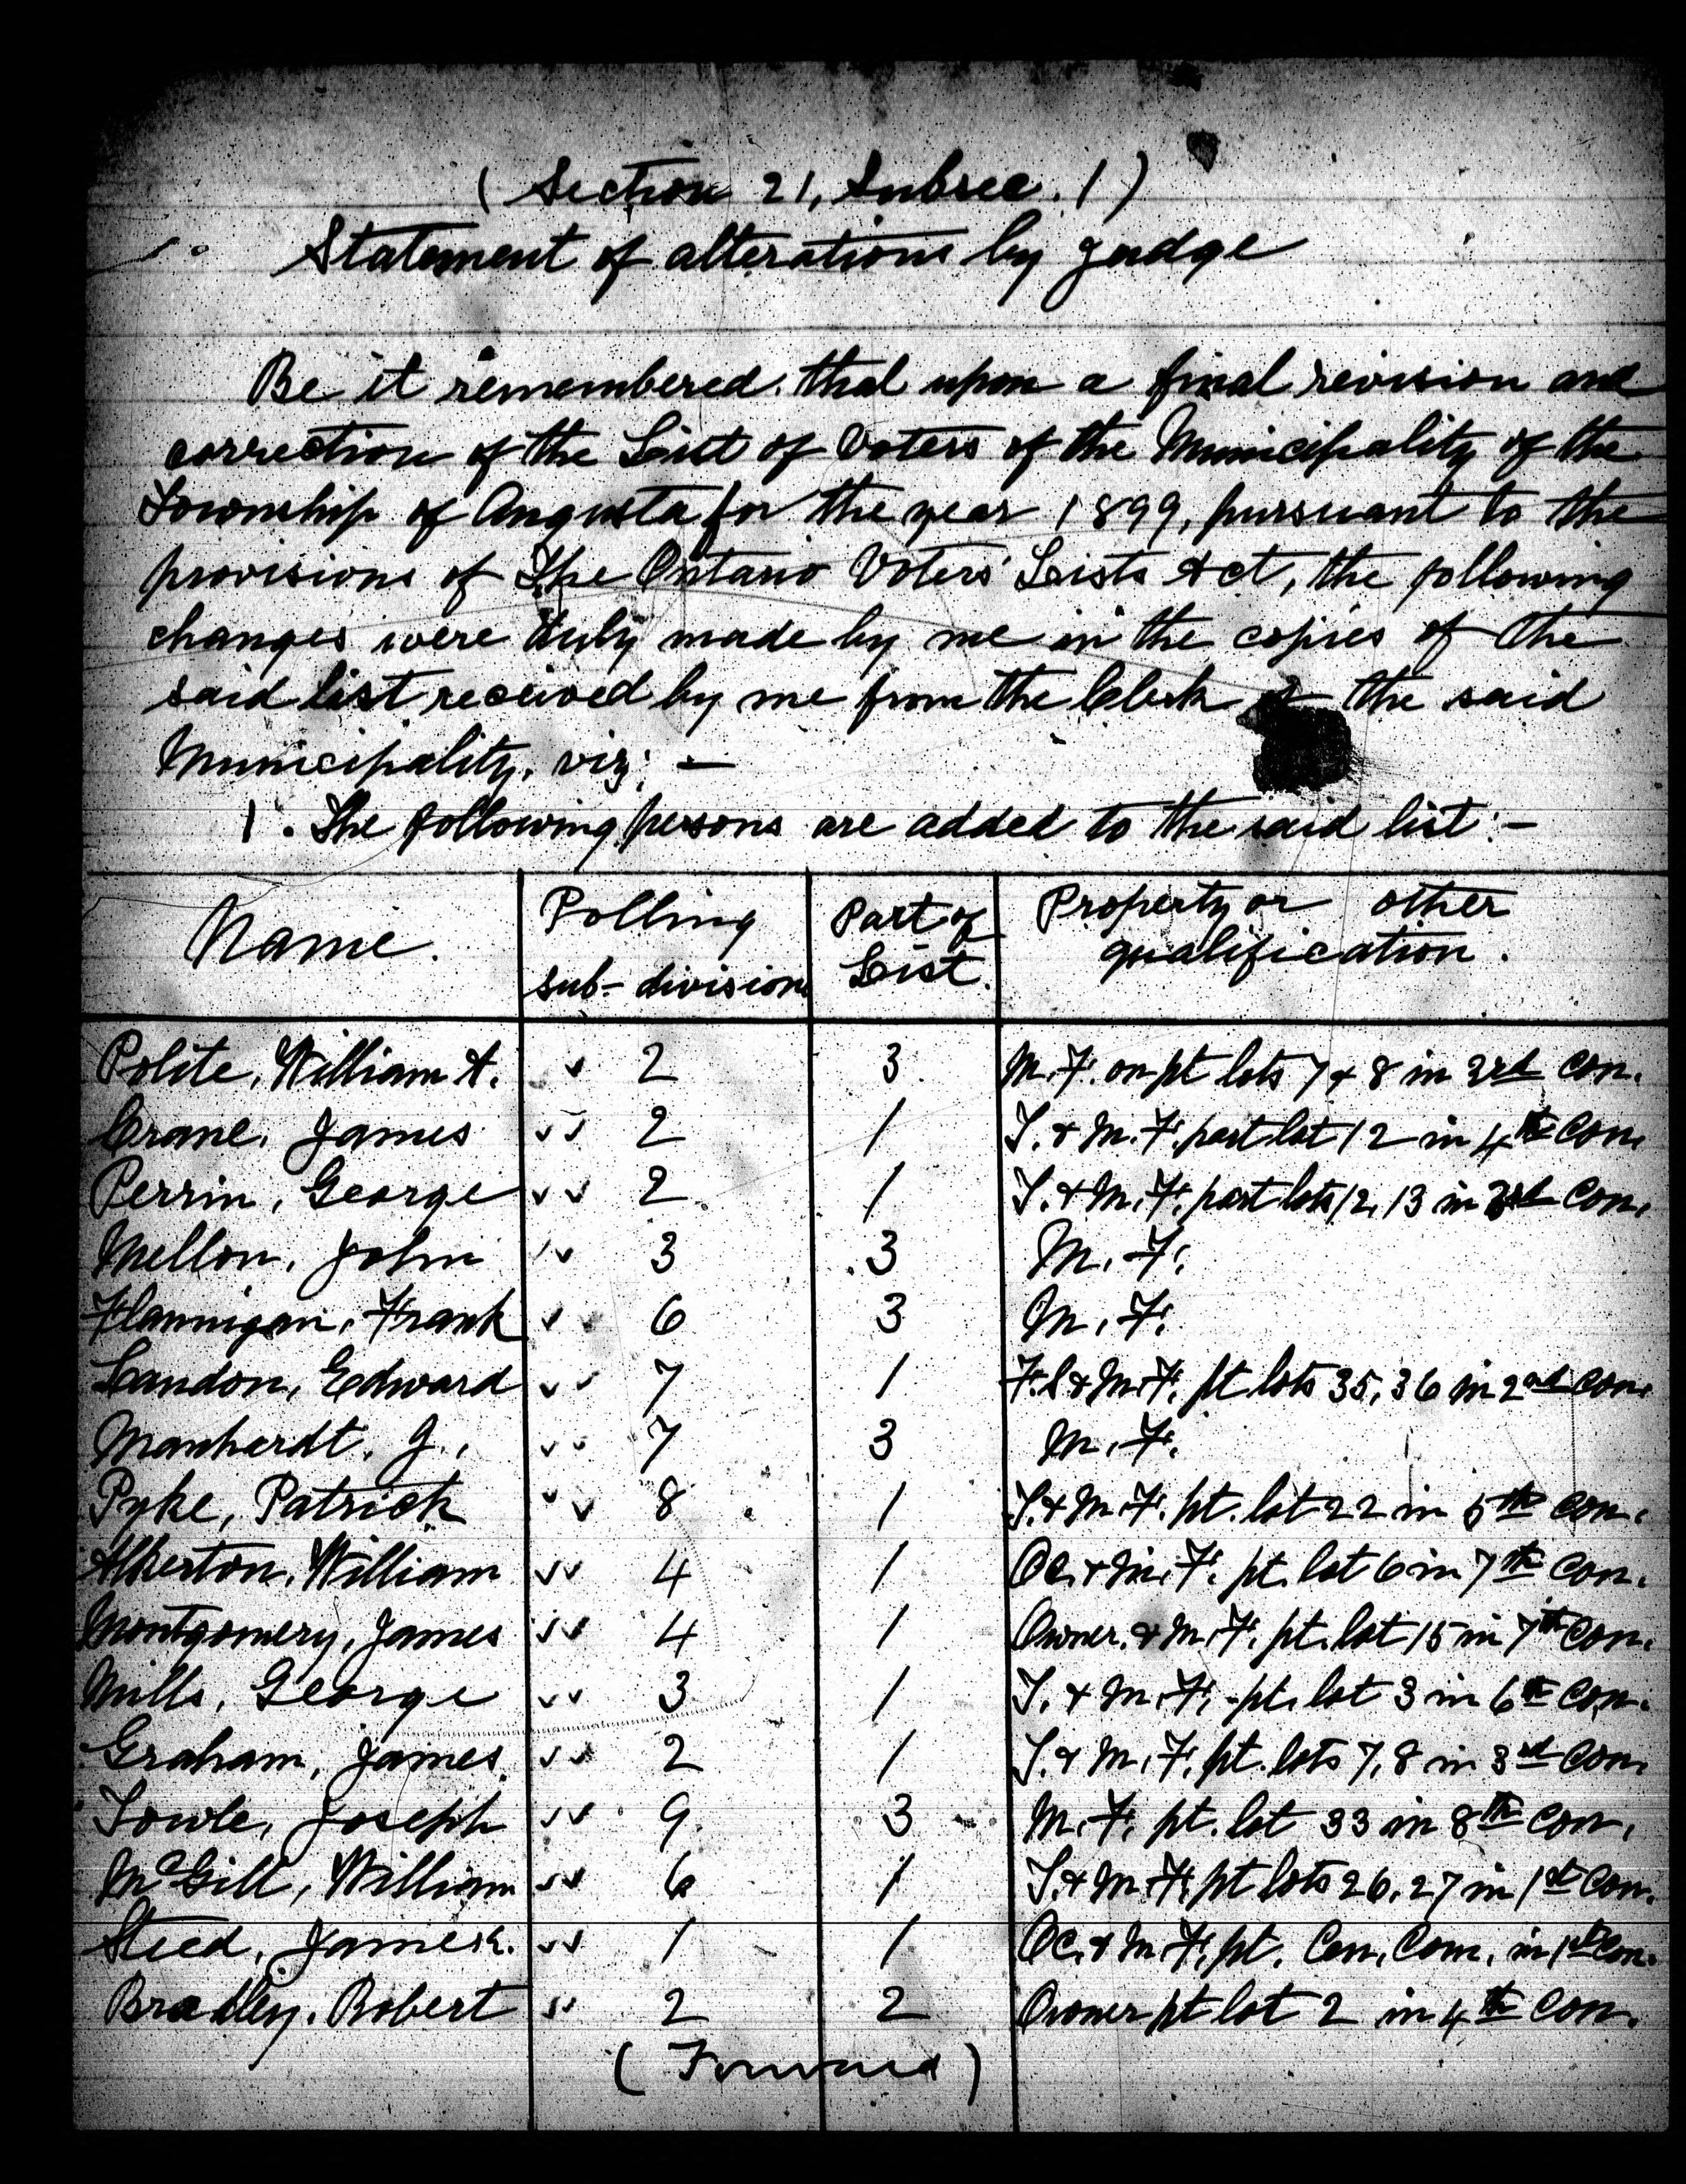 (Section 21, Subsec. 1)
Statement of alterations by Judge
Be it remembered that upon a final revision and
correction of the List of Voters of the Municipality of the
Township of Augusta for the year 1899, pursuant to the
provisions of The Ontario Voters' Lists Act, the following
changes were duly made by me in the copies of the
said list received by me from the Clerk of the said
Municipality, viz; —
1. The following persons are added to the said list:—
Name. Polling sub-division Part of List. Property or other qualification.
Polite, William A. ✓ 2 3 M.F. on pt lots 7 & 8 in 3rd Con.
Crane, James ✓✓ 2 1 T. & M.F. part lot 12 in 4th Con.
Perrin, George ✓✓ 2 1 T. & M.F. part lots 12, 13 in 3rd Con.
Mellon, John ✓✓ 3 3 M.F.
Flannigan, Frank ✓✓ 6 3 M.F.
Landon, Edward ✓✓ 7 1 & M.F. pt lots 35, 36 in 2nd Con.
Manhardt, J., ✓✓ 7 3 M.F.
Pyke, Patrick ✓✓ 8 1 T. & M.F. pt. lot 22 in 5th Con.
William ✓✓ 4 1 Oc. & M.F. pt. lot 6 in 7th Con.
Montgomery, James ✓✓ 4 1 Owner. & M.F. pt. lot 15 in 7th Con.
Mills, George ✓✓ 3 1 T. & M.F. pt. lot 3 in 6th Con.
Graham, James ✓✓ 2 1 T. & M.F. pt. lots 7, 8 in 3rd Con.
Towle, Joseph ✓✓ 9 3 M.F. pt. lot 33 in 8th Con.
McGill, William ✓✓ 6 1 T. & M.F. pt lots 26, 27 in 1st Con.
Steed, James ✓✓ 1 1 Oc. & M.F. pt. Cen. Com. in 1st Con.
Bradley, Robert ✓✓ 2 2 Owner pt lot 2 in 4th Con.
(Forward)